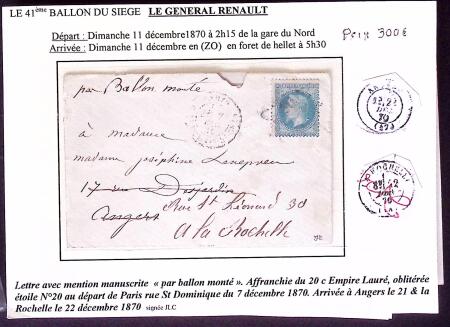 LE 41ème BALLON DU SIEGE LE GENERAL RENAULT
Départ : Dimanche 11 décembre1870 à 2h15 de la gare du Nord
Arrivée : Dimanche 11 décembre en (ZO) en foret de hellet à 5h30
Prix 300€
par Ballon monté
à madame
madame joséphine Lenepveu
17 rue Desjardin
Angers Rue St Léonard 30
a la Rochelle
Lettre avec mention manuscrite « par ballon monté ». Affranchie du 20 c Empire Lauré, oblitérée
étoile N°20 au départ de Paris rue St Dominique du 7 décembre 1870. Arrivée à Angers le 21 & la
Rochelle le 22 décembre 1870 signée JLC